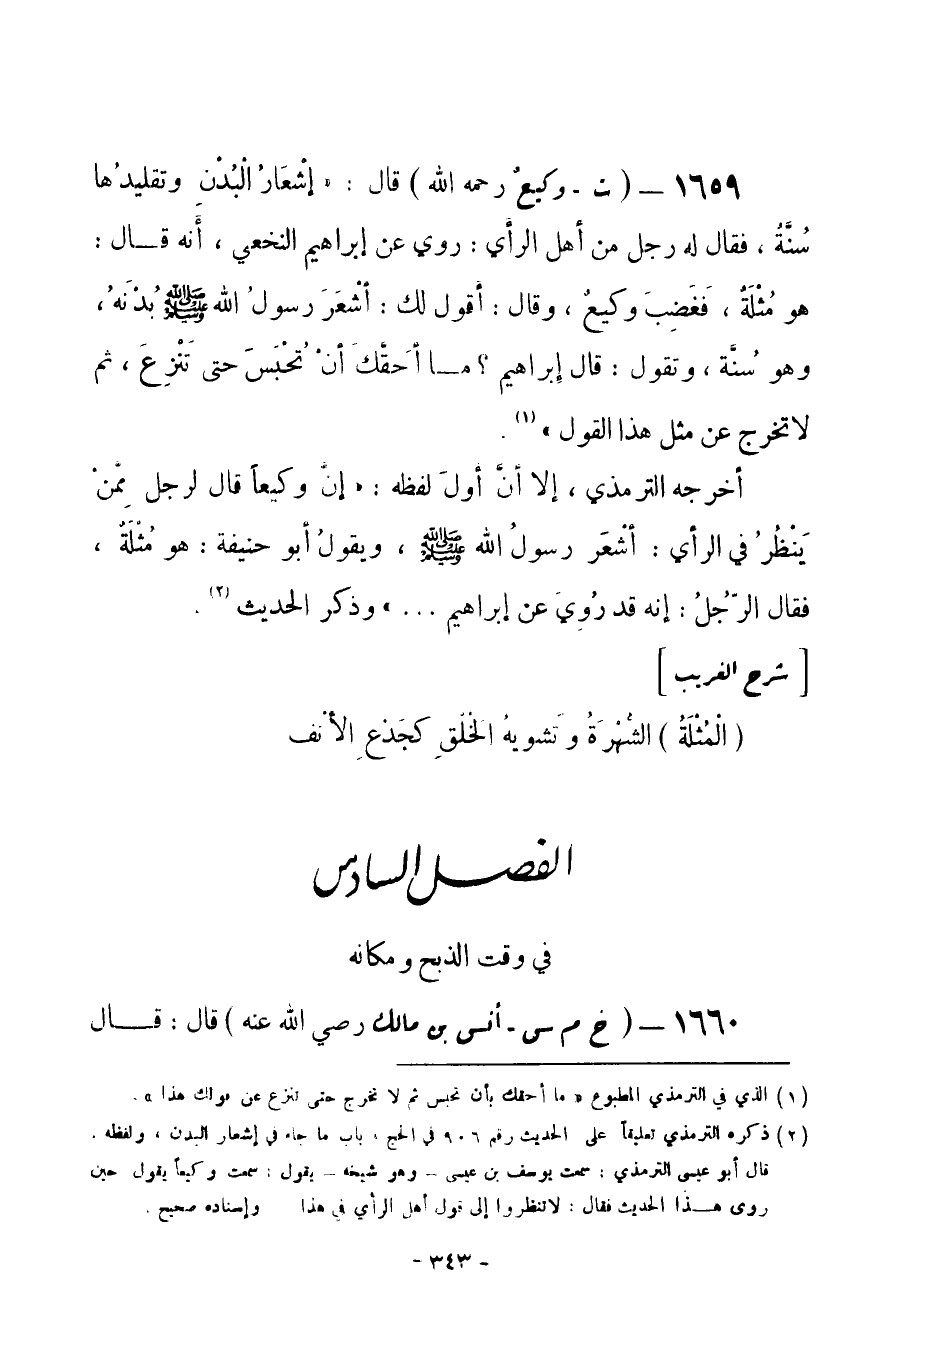 ١٦٥٩ — ( ت - وكيعٌ رحمه الله ) قال : « إشْعَارُ الْبُدْنِ وتقليدُها
سُنَّةٌ ، فقال له رجل من أهل الرأي : روي عن إبراهيم النخعي ، أنه قال :
هو مُثْلَةٌ ، فَغَضِبَ وكيعٌ ، وقال : أقول لك : أشْعَرَ رسولُ الله ﷺ بُدْنَهُ ،
وهو سُنَّة ، وتقول : قال إبراهيم ؟ ما أحَقَّكَ أنْ تُحْبَسَ حتى تَنْزِعَ ، ثم
لا تخرج عن مثل هذا القول » (١) .
أخرجه الترمذي ، إلا أنَّ أولَ لفظه : « إنَّ وكيعاً قال لرجل مِمَّنْ
يَنْظُرُ في الرأي : أشْعَر رسولُ الله ﷺ ، ويقولُ أبو حنيفة : هو مُثْلَةٌ ،
فقال الرَّجُلُ : إنه قد رُوِيَ عن إبراهيم ... » وذكر الحديث (٢) .
[ شرح الغريب ]
( الْمُثْلَةُ ) الشُّهْرَةُ وتَشويهُ الخَلْقِ كجَدْعِ الأنْف
الفصل السادس
في وقت الذبح ومكانه
١٦٦٠ — ( خ م س - أنس بن مالك رضي الله عنه ) قال : قال
(١) الذي في الترمذي المطبوع « ما أحقك بأن تحبس ثم لا تخرج حتى تنزع عن قولك هذا » .
(٢) ذكره الترمذي تعليقاً على الحديث رقم ٩٠٦ في الحج ، باب ما جاء في إشعار البدن ، ولفظه .
قال أبو عيسى الترمذي : سمعت يوسف بن عيسى - وهو شيخه - يقول : سمعت وكيعاً يقول حين
روى هذا الحديث فقال : لا تنظروا إلى قول أهل الرأي في هذا وإسناده صحيح .
- ٣٤٣ -